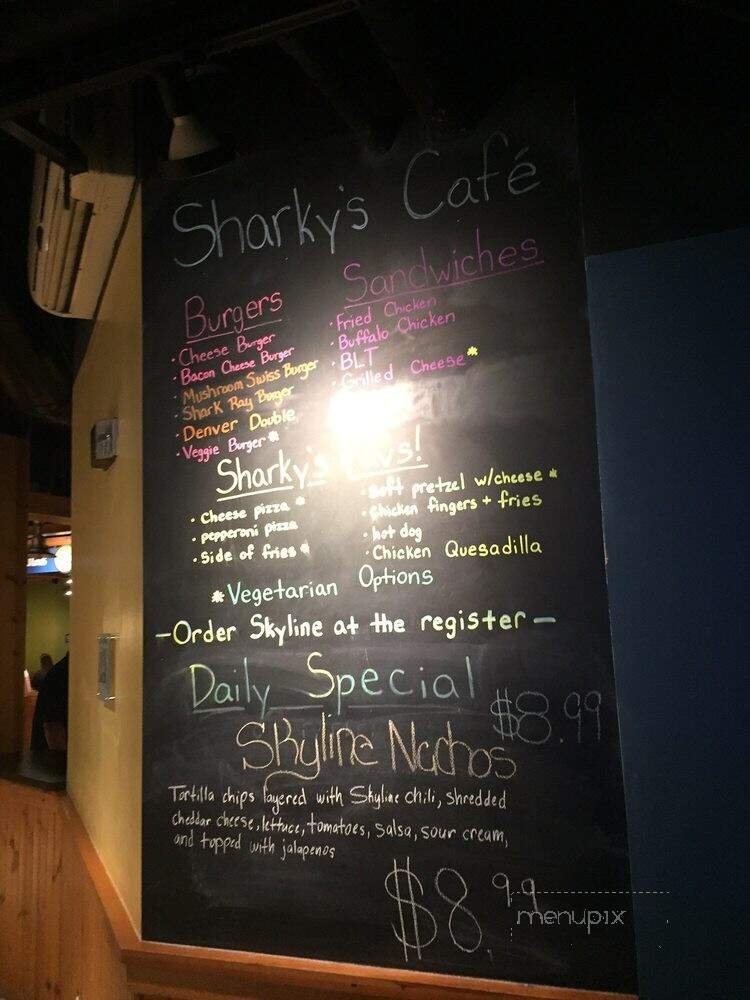 Sharky's Café
Burgers
· Cheese Burger
· Bacon Cheese Burger
· Mushroom Swiss Burger
· Shark Ray Burger
· Denver Double
· Veggie Burger *
Sandwiches
· Fried Chicken
· Buffalo Chicken
· BLT
· Grilled Cheese *
Sharky's Favs!
· Cheese pizza *
· pepperoni pizza
· Side of fries *
· Soft pretzel w/cheese *
· Chicken fingers + fries
· hot dog
· Chicken Quesadilla
* Vegetarian Options
- Order Skyline at the register -
Daily Special
$8.99
Skyline Nachos
Tortilla chips layered with Skyline chili, shredded
cheddar cheese, lettuce, tomatoes, salsa, sour cream,
and topped with jalapenos
$8.99
menupix